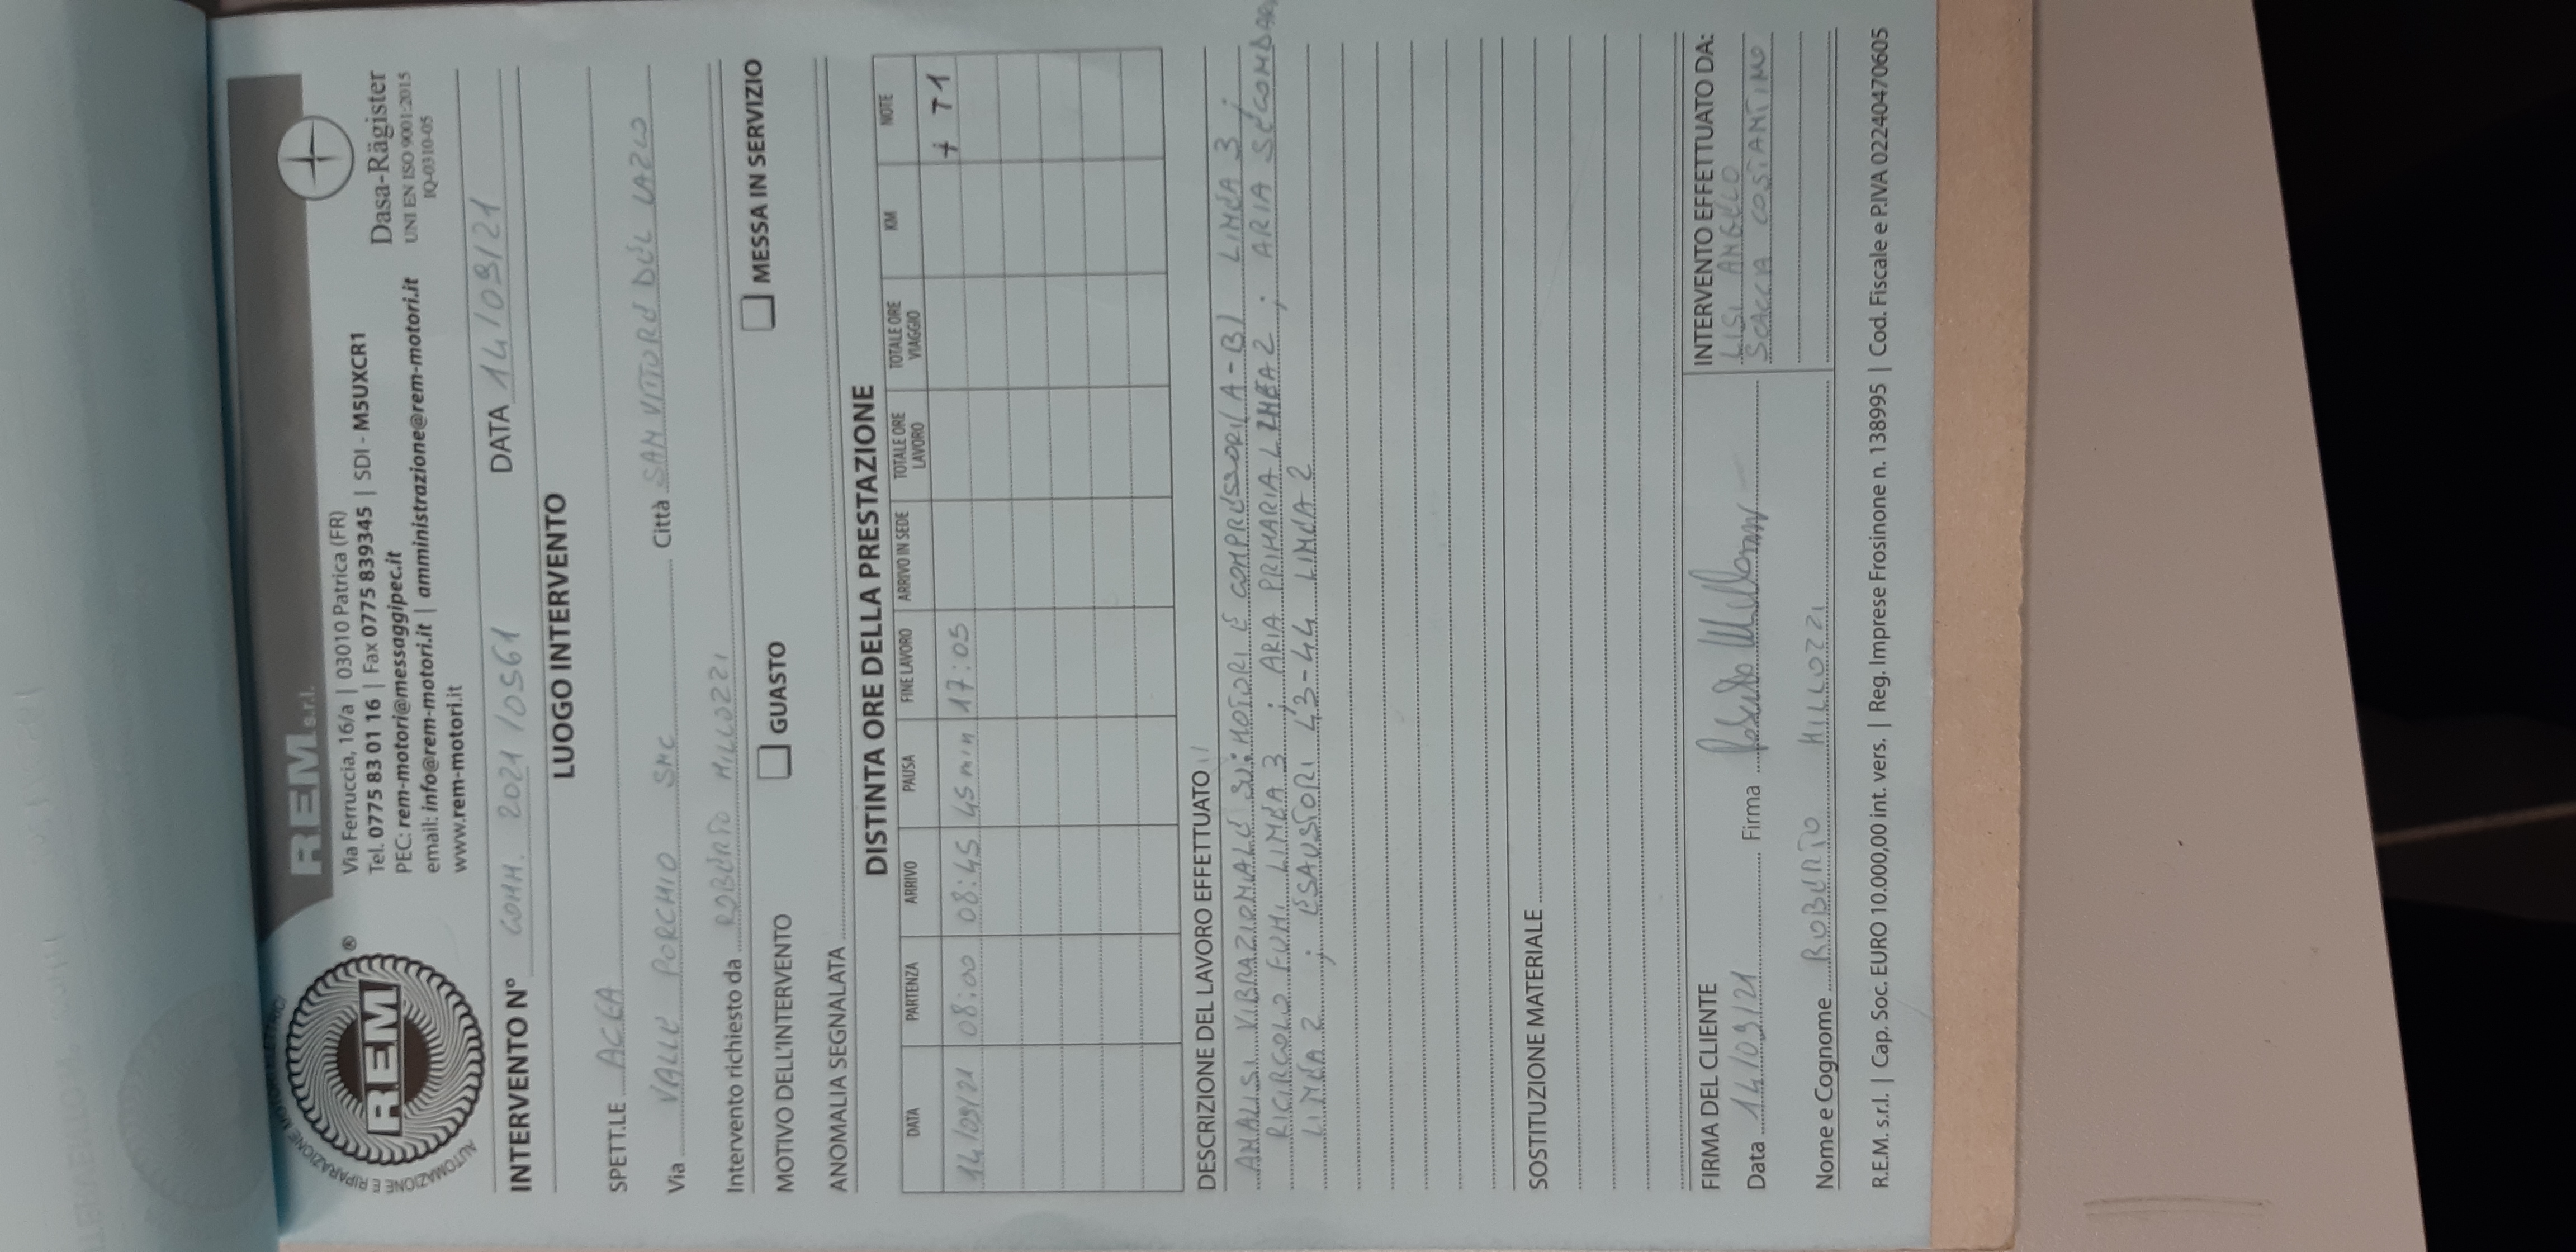 REM
AUTOMAZIONE E RIPARAZIONE MOTORI ELETTRICI
®
REM s.r.l.
Via Ferruccia, 16/a | 03010 Patrica (FR)
Tel. 0775 83 01 16 | Fax 0775 839345 | SDI - M5UXCR1
PEC: rem-motori@messaggipec.it
email: info@rem-motori.it | amministrazione@rem-motori.it
www.rem-motori.it
Dasa-Rägister
UNI EN ISO 9001:2015
IQ-0310-05
INTERVENTO N° COMM. 2021 10561 DATA 14/09/21
LUOGO INTERVENTO
SPETT.LE ACEA
Via VALLE PORCHIO SNC Città SAN VITTORE DEL LAZIO
Intervento richiesto da ROBERTO MILLOZZI
MOTIVO DELL'INTERVENTO GUASTO MESSA IN SERVIZIO
ANOMALIA SEGNALATA
DISTINTA ORE DELLA PRESTAZIONE
DATA PARTENZA ARRIVO PAUSA FINE LAVORO ARRIVO IN SEDE TOTALE ORE LAVORO TOTALE ORE VIAGGIO KM NOTE
14/09/21 08:00 08:45 45 min 17:05 + T1
DESCRIZIONE DEL LAVORO EFFETTUATO
ANALISI VIBRAZIONALE SU: MOTORI E COMPRESSORI (A-B) LINEA 3 ;
RICIRCOLO FUMI LINEA 3 ; ARIA PRIMARIA LINEA 2 ; ARIA SECONDARIA
LINEA 2 ; ESAUSTORI 43-44 LINEA 2
SOSTITUZIONE MATERIALE
FIRMA DEL CLIENTE
INTERVENTO EFFETTUATO DA:
Data 14/09/21 Firma
LISI ANGELO
SCACCIA COSTANTINO
Nome e Cognome ROBERTO MILLOZZI
R.E.M. s.r.l. | Cap. Soc. EURO 10.000,00 int. vers. | Reg. Imprese Frosinone n. 138995 | Cod. Fiscale e P.IVA 02240470605